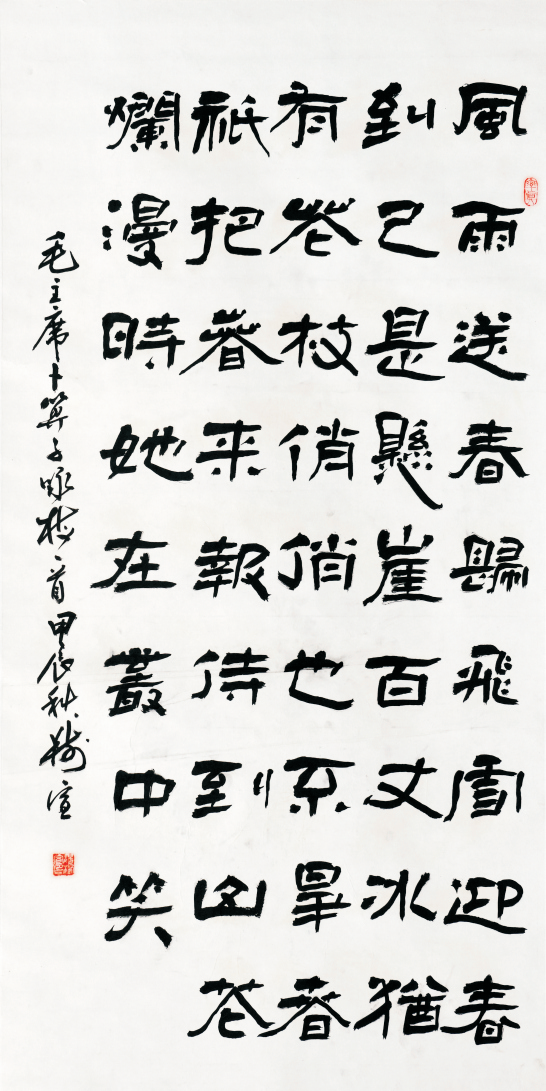 風雨送春歸飛雪迎春
到已是懸崖百丈冰猶
有花枝俏俏也不爭春
祇把春来報待到山花
爛漫時她在叢中笑
毛主席卜算子咏梅一首甲辰秋宣